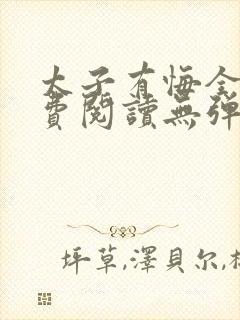 太子有悔全
費閱讀無彈
坪草,澤貝尔,